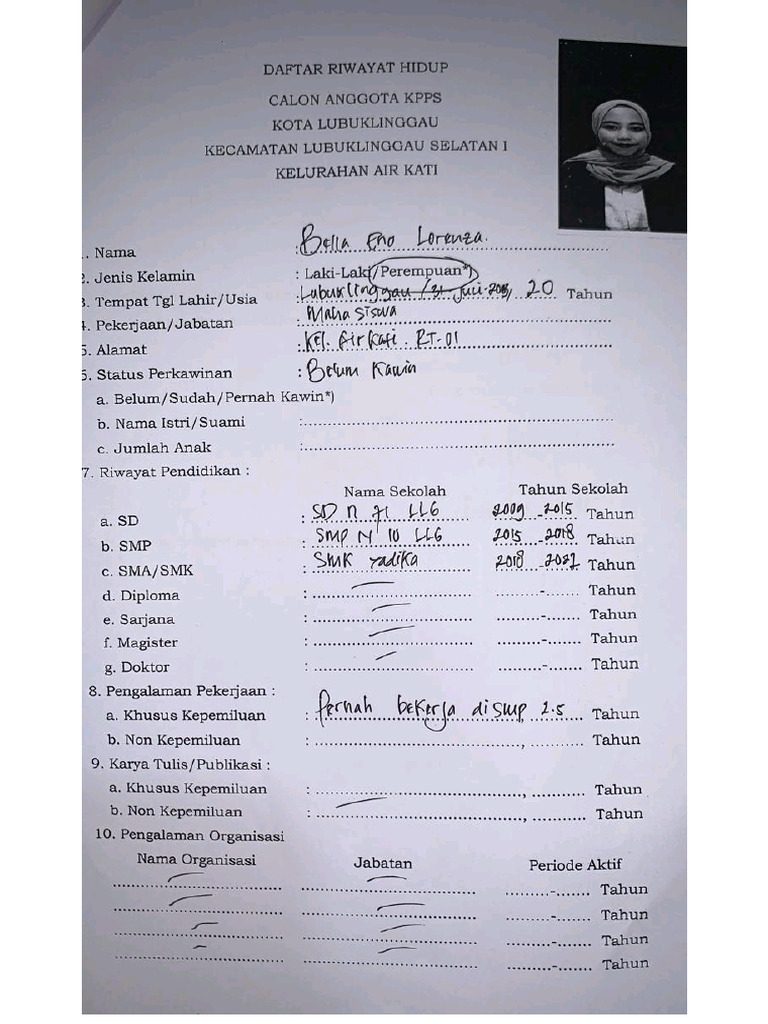 DAFTAR RIWAYAT HIDUP
CALON ANGGOTA KPPS
KOTA LUBUKLINGGAU
KECAMATAN LUBUKLINGGAU SELATAN I
KELURAHAN AIR KATI
1. Nama : Bella Eno Lorenza.
2. Jenis Kelamin : Laki-Laki/Perempuan*)
3. Tempat Tgl Lahir/Usia : Lubuklinggau / 31 Juli, 20 Tahun
4. Pekerjaan/Jabatan : Mahasiswa
5. Alamat : Kel. Air Kati. RT-01
6. Status Perkawinan : Belum Kawin
a. Belum/Sudah/Pernah Kawin*)
b. Nama Istri/Suami :
c. Jumlah Anak :
7. Riwayat Pendidikan :
Nama Sekolah Tahun Sekolah
a. SD : SD N 71 LLG 2009 - 2015 Tahun
b. SMP : SMP N 10 LLG 2015 - 2018 Tahun
c. SMA/SMK : SMK Yadika 2018 - 2021 Tahun
d. Diploma : - Tahun
e. Sarjana : - Tahun
f. Magister : - Tahun
g. Doktor : - Tahun
8. Pengalaman Pekerjaan :
a. Khusus Kepemiluan : Pernah bekerja di SMP, 2.5 Tahun
b. Non Kepemiluan : , Tahun
9. Karya Tulis/Publikasi :
a. Khusus Kepemiluan : , Tahun
b. Non Kepemiluan : , Tahun
10. Pengalaman Organisasi
Nama Organisasi Jabatan Periode Aktif
- Tahun
- Tahun
- Tahun
- Tahun